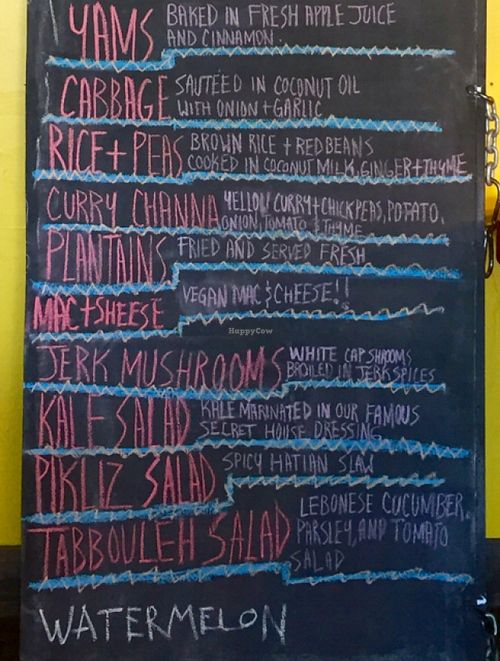 YAMS BAKED IN FRESH APPLE JUICE
AND CINNAMON.
CABBAGE SAUTEED IN COCONUT OIL
WITH ONION + GARLIC
RICE + PEAS BROWN RICE + RED BEANS
COOKED IN COCONUT MILK, GINGER + THYME
CURRY CHANNA YELLOW CURRY + CHICK PEAS, POTATO,
ONION, TOMATO & THYME
PLANTAINS FRIED AND SERVED FRESH
MAC + SHEESE VEGAN MAC & CHEESE!!
HappyCow
JERK MUSHROOMS WHITE CAP SHROOMS
BROILED IN JERK SPICES
KALE SALAD KALE MARINATED IN OUR FAMOUS
SECRET HOUSE DRESSING
PIKLIZ SALAD SPICY HATIAN SLAW
TABBOULEH SALAD LEBONESE CUCUMBER,
PARSLEY, AND TOMATO
SALAD
WATERMELON